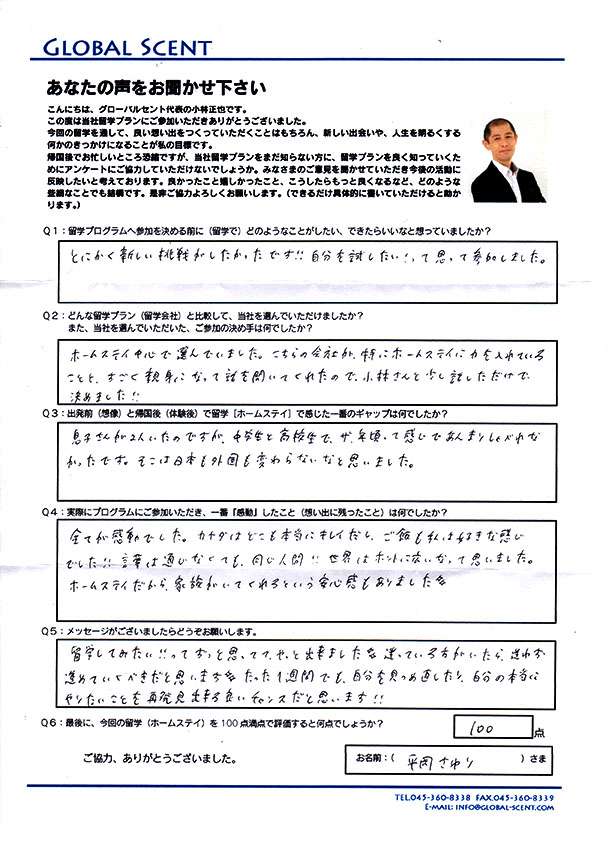 GLOBAL SCENT
あなたの声をお聞かせ下さい
こんにちは、グローバルセント代表の小林正也です。
この度は当社留学プランにご参加いただきありがとうございました。
今回の留学を通して、良い想い出をつくっていただくことはもちろん、新しい出会いや、人生を明るくする
何かのきっかけになることが私の目標です。
帰国後でお忙しいところ恐縮ですが、当社留学プランをまだ知らない方に、留学プランを良く知っていくた
めにアンケートにご協力していただけないでしょうか。みなさまのご意見を聞かせていただき今後の活動に
反映したいと考えております。良かったこと嬉しかったこと、こうしたらもっと良くなるなど、どのような
些細なことでも結構です。是非ご協力よろしくお願いします。（できるだけ具体的に書いていただけると助か
ります。）
Q1：留学プログラムへ参加を決める前に（留学で）どのようなことがしたい、できたらいいなと想っていましたか？
とにかく新しい挑戦がしたかったです!! 自分を試したい！って思って参加しました。
Q2：どんな留学プラン（留学会社）と比較して、当社を選んでいただけましたか？
また、当社を選んでいただいた、ご参加の決め手は何でしたか？
ホームステイ中心で選んでいました。こちらの会社が、特にホームステイに力を入れている
ことと、すごく親身になって話を聞いてくれたので、小林さんと少し話しただけで、
決めました!!
Q3：出発前（想像）と帰国後（体験後）で留学［ホームステイ］で感じた一番のギャップは何でしたか？
息子さんが2人いたのですが、中学生と高校生で、ザ、年頃って感じであんまりしゃべれな
かったです。そこは日本も外国も変わらないなと思いました。
Q4：実際にプログラムにご参加いただき、一番「感動」したこと（想い出に残ったこと）は何でしたか？
全てが感動でした。カナダはどこも本当にキレイだし、ご飯も私は好きな感じ
でした!! 言葉は通じなくても、同じ人間!! 世界はホントに広いなって思いました。
ホームステイだから、家族がいてくれるという安心感もありました
Q5：メッセージがございましたらどうぞお願いします。
留学してみたい!!ってずっと思ってて、やっと出来ました 迷っている方がいたら、迷わず
進めていくべきだと思います たった1週間でも、自分を見つめ直したり、自分の本当に
やりたいことを再発見出来る良いチャンスだと思います!!
Q6：最後に、今回の留学（ホームステイ）を100点満点で評価すると何点でしょうか？
100 点
ご協力、ありがとうございました。
お名前：（ 平岡 さゆり ）さま
TEL.045-360-8338 FAX.045-360-8339
E-MAIL: INFO@GLOBAL-SCENT.COM